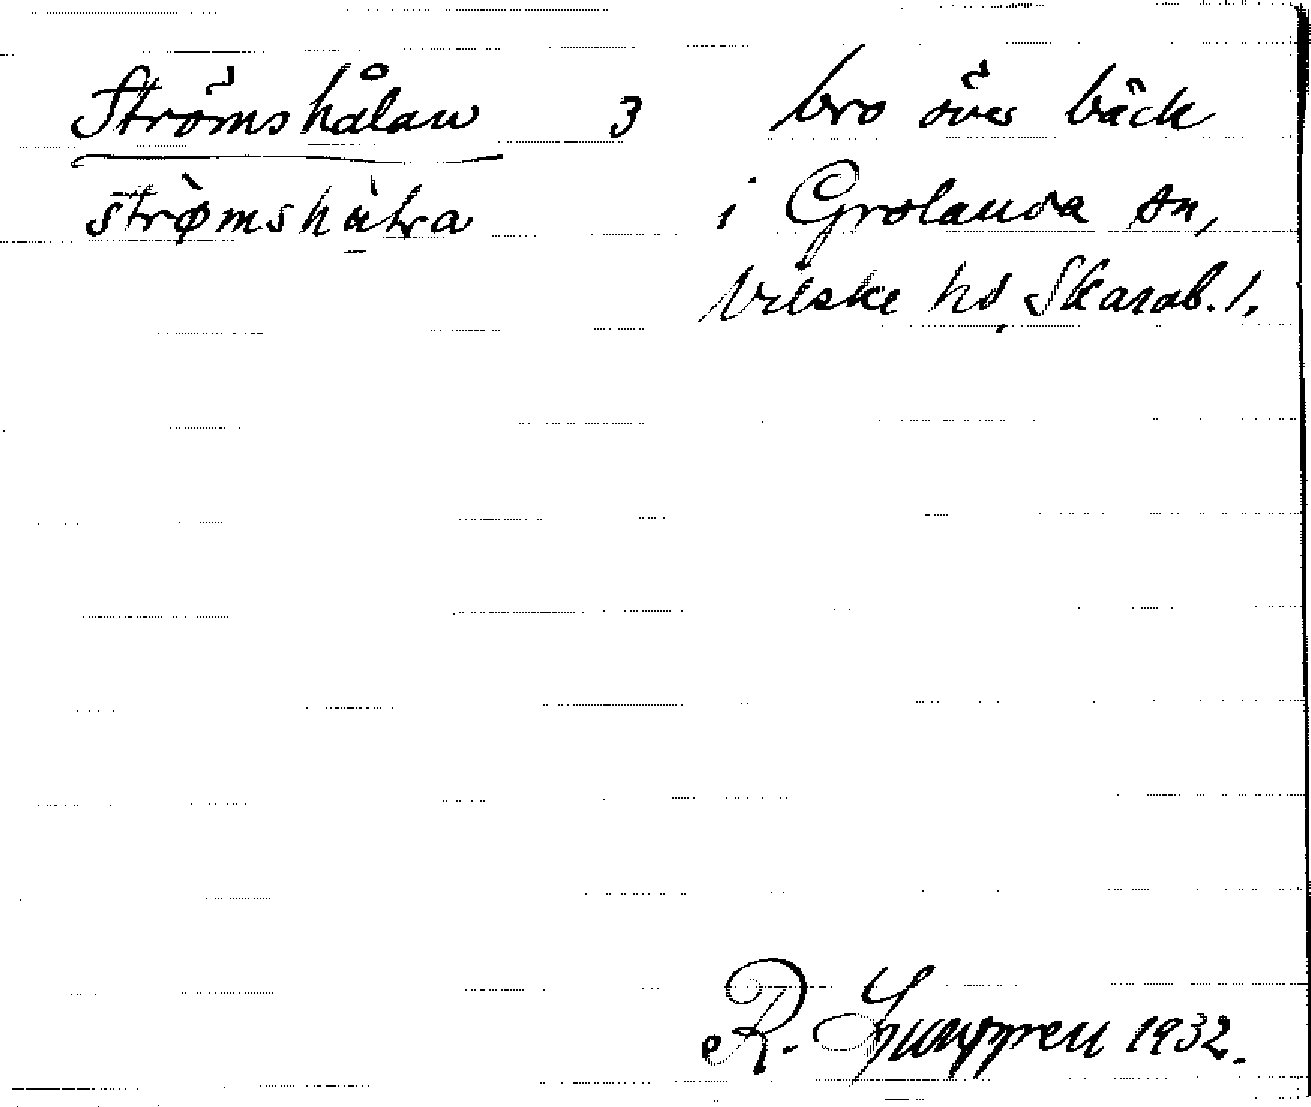 Strömshålan 3 bro över bäck
i Grolanda sn,
Vilske hd, Skarab. l.
R. Ljunggren 1932.